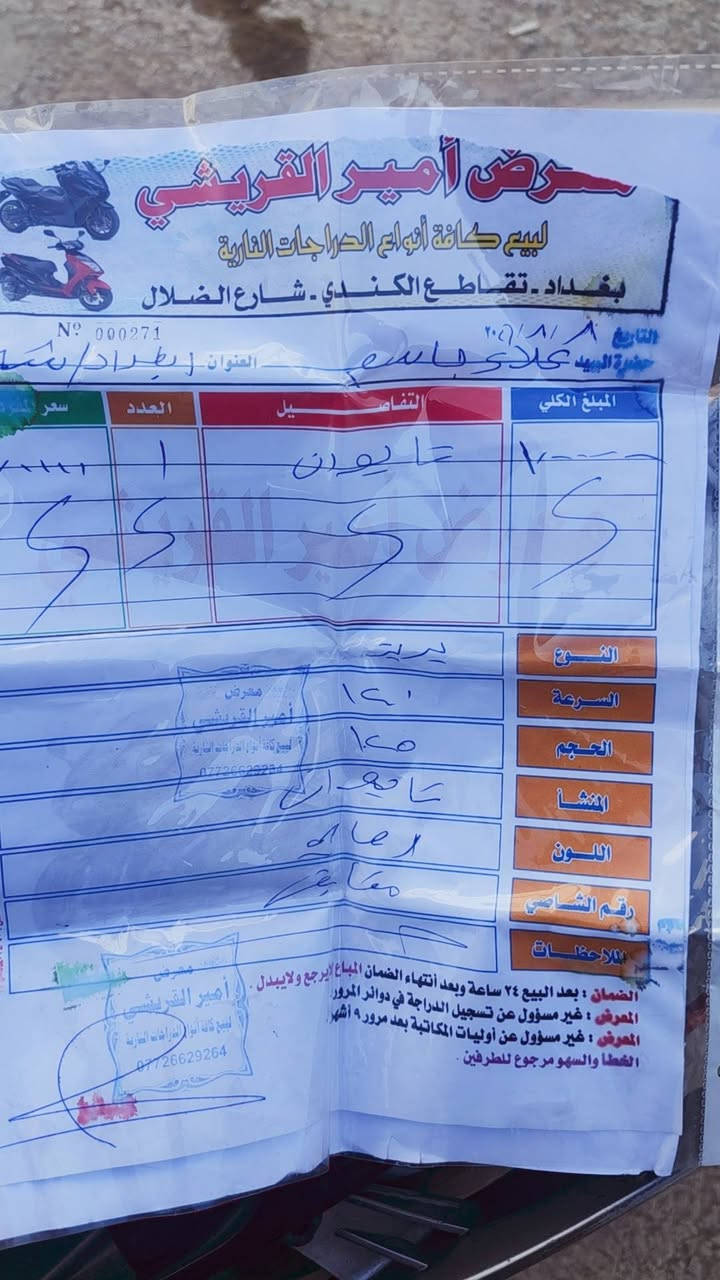 معرض أمير القريشي
لبيع كافة أنواع الدراجات النارية
بغداد - تقاطع الكندي - شارع الضلال
Nº 000271
التاريخ
حضرة السيد علاء جاسم العنوان بغداد/
المبلغ الكلي التفاصيل العدد سعر
تايوان ١
النوع
السرعة ١٢٠
الحجم ١٢٥
المنشأ تايوان
اللون
رقم الشاصي
الملاحظات
معرض
أمير القريشي
لبيع كافة أنواع الدراجات النارية
07726629264
الضمان : بعد البيع ٢٤ ساعة وبعد أنتهاء الضمان المباع لايرجع ولايبدل .
المعرض : غير مسؤول عن تسجيل الدراجة في دوائر المرور
المعرض : غير مسؤول عن أوليات المكاتبة بعد مرور ٩ أشهر
الخطا والسهو مرجوع للطرفين .
معرض
أمير القريشي
لبيع كافة أنواع الدراجات النارية
07726629264